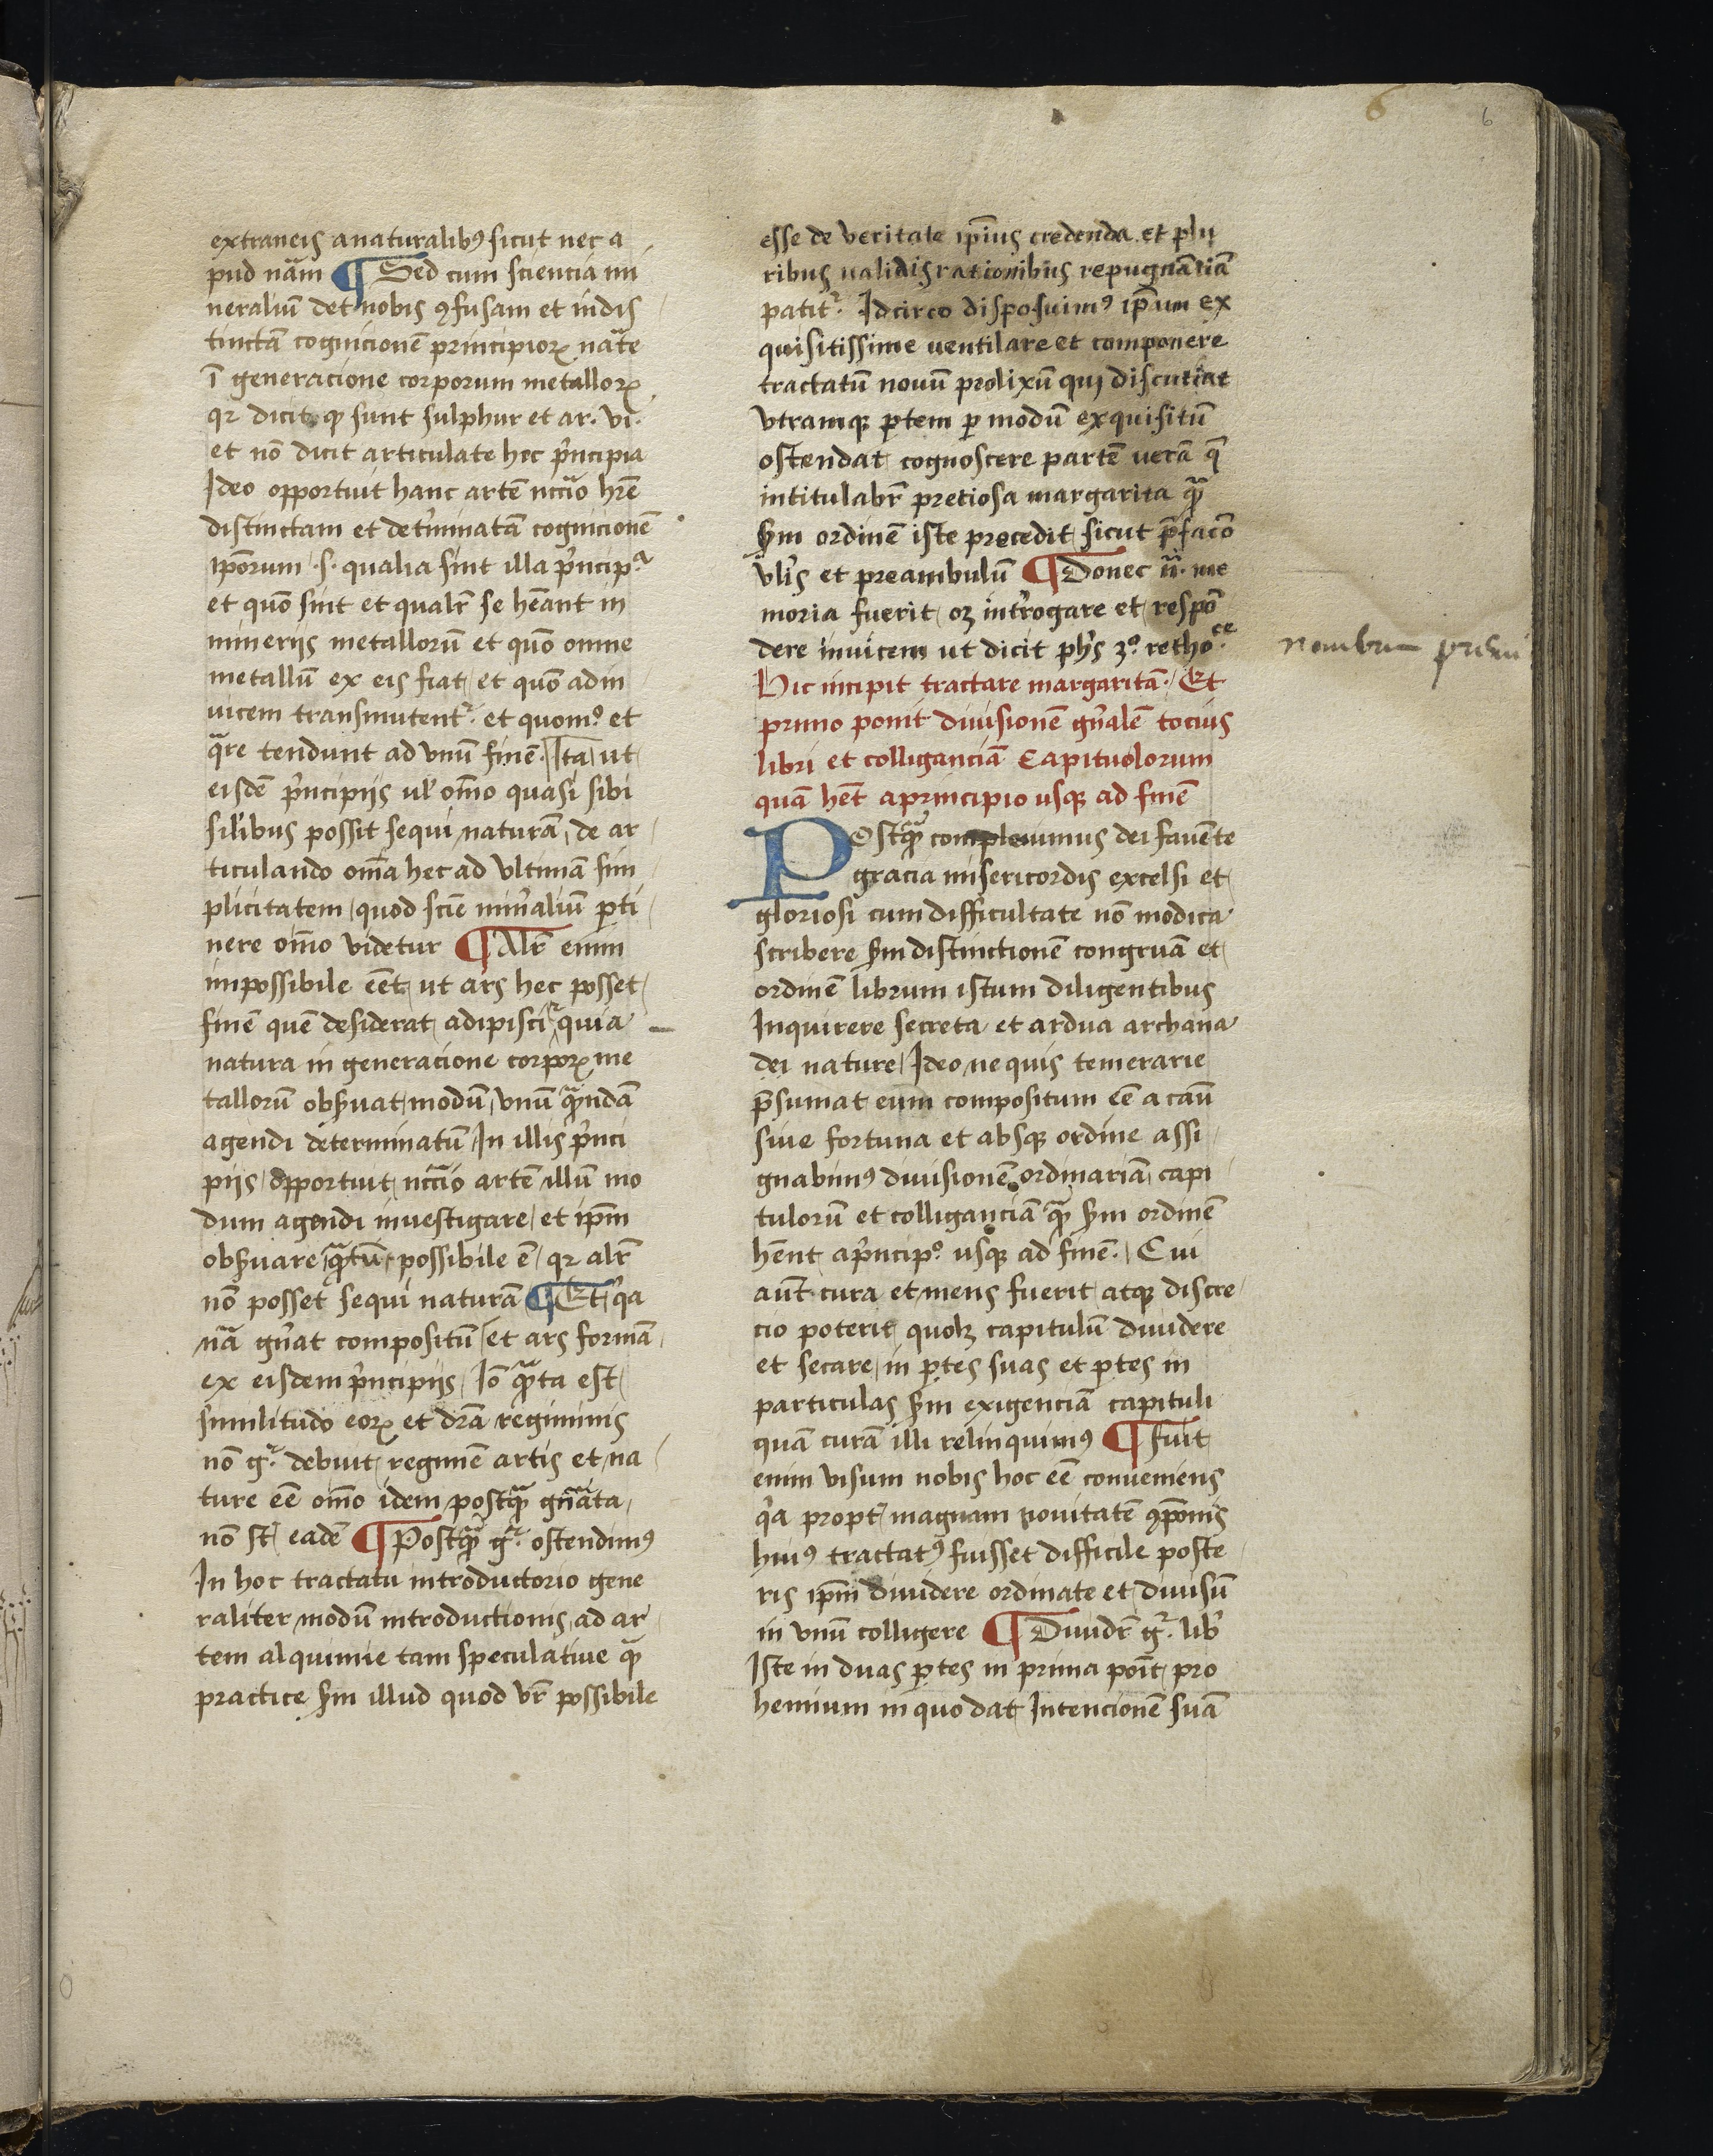 6
6
extraneis a naturalibꝰ sicut nec a
pud nãm ¶ Sed cum sciencia mi
neraliũ det nobis ꝯfusam et indis
tinctã cognicionẽ principioꝝ nãte
ĩ generacione corporum metalloꝝ
qꝛ dicit ꝙ sunt sulphur et ar. vi.
et nõ dicit articulate hec p̃ncipia
Ideo opportuit hanc artẽ nccãio hr̃e
distinctam et det̃minatã cognicionẽ
ip̃orum .s. qualia sint illa p̃ncipᵃ
et quõ sint et qualr̃ se hẽant in
minerijs metallorũ et quõ omne
metallũ ex eis fiat et quõ adin
uicem transmutent᷑. et quomº et
qᵃre tendunt ad vnũ finẽ. Ita ut
eisdẽ p̃ncipijs ul̃ om̃o quasi sibi
sil̃ibus possit sequi naturã, de ar
ticulando om̃ia hec ad vltimã sim
plicitatem quod scĩe miñaliũ ꝑti
nere om̃o videtur ¶ Alr̃ enim
impossibile eẽt ut ars hec posset
finẽ quẽ desiderat adipisci quia
natura in generacione corpoꝝ me
tallorũ obs̃uat modũ vnũ quᵃndã
agendi determinatũ In illis p̃nci
pijs, opportuit nccãio artẽ illũ mo
dum agendi inuestigare et ip̃m
obs̃uare quᵃtũ possibile ẽ, qꝛ alr̃
nõ posset sequi naturã ¶ Et qᵃ
nã gñat compositũ et ars formã
ex eisdem p̃ncipijs, Iõ quᵃta est
similitudo eoꝝ et dr̃ã regiminis
nõ g᷑. debuit regimẽ artis et na
ture eẽ om̃o idem postqᵃ gñãta
nõ st̃ eadẽ ¶ Postqᵃ g᷑. ostendimꝰ
In hoc tractatu introductorio gene
raliter modũ introductionis, ad ar
tem alquimie tam speculatiue qᵃ
practice s̃m illud quod vr̃ possibile
esse de veritate ip̃ius credenda. et plu
ribus ualidis rationibus repugnãciã
patit᷑. Idcirco disposuimꝰ ip̃um ex
quisitissime uentilare et componere
tractatũ nouũ prolixũ qui discutiat
vtramqꝫ ꝑtem ꝑ modũ exquisitũ
ostendat cognoscere partẽ uerã q̃
intitulabr̃ pretiosa margarita qᵃ
s̃m ordinẽ iste precedit sicut p̃facõ
vl̃is et preambulũ ¶ Donec ñ. me
moria fuerit oꝫ int̃rogare et respõ
dere inuicem ut dicit ph̃s 3º. rethoᶜᵉ.
Hic incipit tractare margaritã. Et
primo ponit diuisionẽ gñalẽ tocius
libri et colliganciã Capituolorum
quã hẽt a principio usqꝫ ad finẽ
Postqᵃ compleuimus dei fauẽte
gracia misericordis excelsi et
gloriosi cum difficultate nõ modica
scribere s̃m distinctionẽ congruã et
ordinẽ librum istum diligentibus
Inquirere secreta et ardua archana
dei nature, Ideo ne quis temerarie
p̃sumat eum compositum eẽ a casũ
siue fortuna et absqꝫ ordine assi
gnabimꝰ diuisionẽ ordinariã capi
tulorũ et colliganciã quᵃ s̃m ordinẽ
hẽnt a p̃ncipº. usqꝫ ad finẽ. Cui
aut̃ cura et mens fuerit atqꝫ discre
cio poterit quolꝫ capitulũ diuidere
et secare in ꝑtes suas et ꝑtes in
particulas s̃m exigenciã capituli
quã curã illi relinquimꝰ ¶ fuit
enim visum nobis hoc eẽ conueniens
qᵃ propt̃ magnam nouitatẽ ꝯp̃onis
huiꝰ tractatꝰ fuisset difficile poste
ris ip̃m diuidere ordinate et diuisũ
in vnũ colligere ¶ Diuidr̃ g᷑. lib̃
Iste in duas ꝑtes in prima põit pro
hemium in quo dat Intencionẽ suã